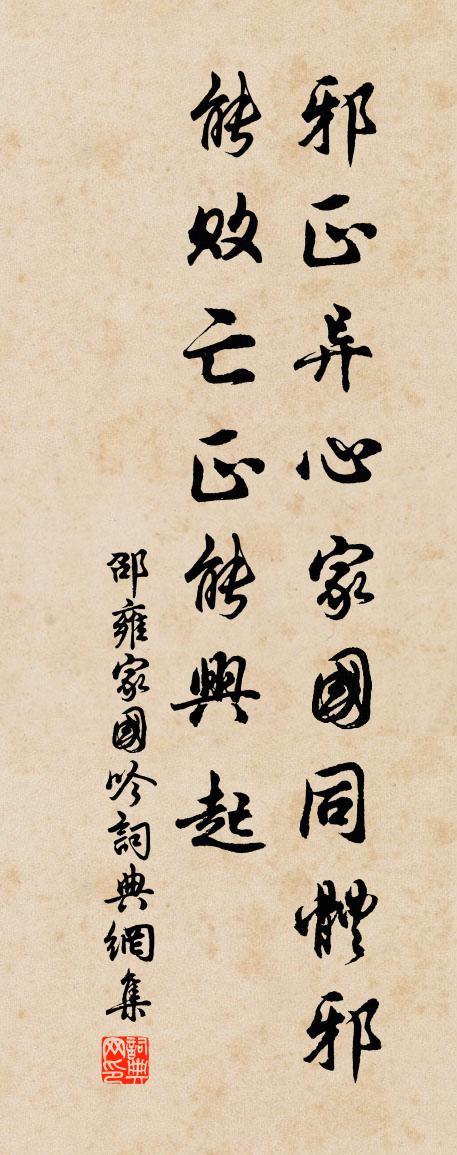 邪正异心家國同體邪
能敗亡正能興起
邵雍家國吟詞典網集
詞典
网印